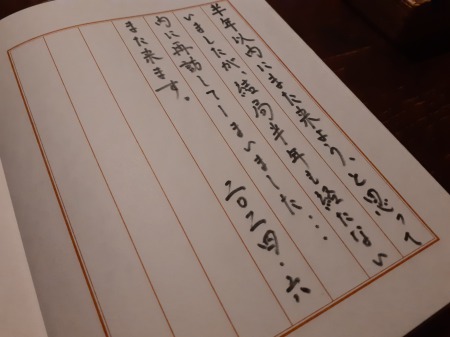 半年以内にまた来よう、と思って
いましたが、結局半年も経たない
内に再訪してしまいました…
また来ます。
二〇二四・六